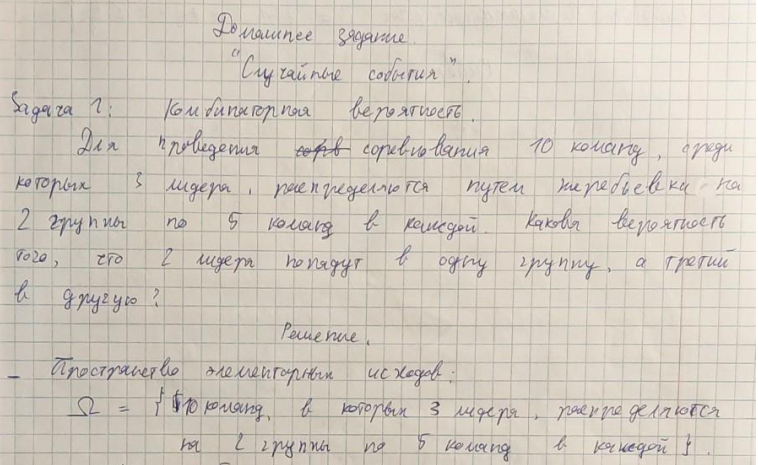 Домашнее задание.
"Случайные события".
Задача 1: Комбинаторная вероятность.
Для проведения соревнования 10 команд, среди
которых 3 лидера, распределяются путем жеребьевки на
2 группы по 5 команд в каждой. Какова вероятность
того, что 2 лидера попадут в одну группу, а третий
в другую?
Решение.
- Пространство элементарных исходов:
Ω = { 10 команд, в которых 3 лидера, распределяются
на 2 группы по 5 команд в каждой }.